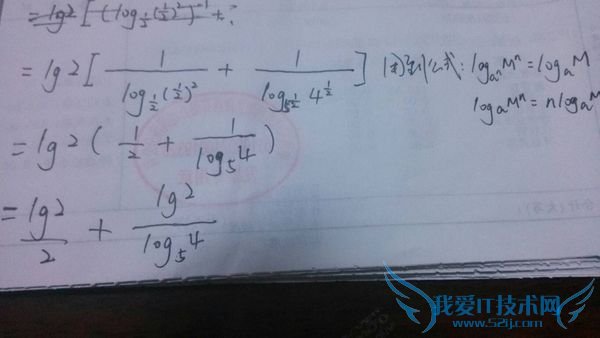 = lg2 [ (log_{1/2}(1/2)^2)^{-1} +
= lg2 [ \frac{1}{log_{1/2}(1/2)^2} + \frac{1}{log_{5^{1/2}} 4^{1/2}} ] 用到公式: log_{a^n} M^n = log_a M
log_a M^n = n log_a M
= lg2 ( \frac{1}{2} + \frac{1}{log_5 4} )
= \frac{lg2}{2} + \frac{lg2}{log_5 4}
我爱IT技术网
www.52ij.com